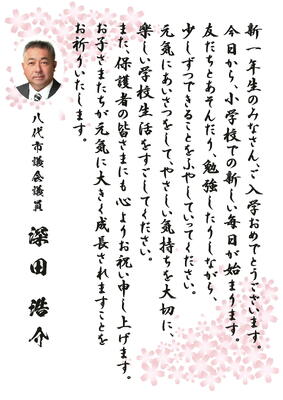 新一年生のみなさん、ご入学おめでとうございます。
今日から、小学校での新しい毎日が始まります。
友だちとあそんだり、勉強したりしながら、
少しずつできることをふやしていってください。
元気にあいさつをして、やさしい気持ちを大切に、
楽しい学校生活をすごしてください。
また、保護者の皆さまにも心よりお祝い申し上げます。
お子さまたちが元気に大きく成長されますことを
お祈りいたします。
八代市議会議員
深田浩介